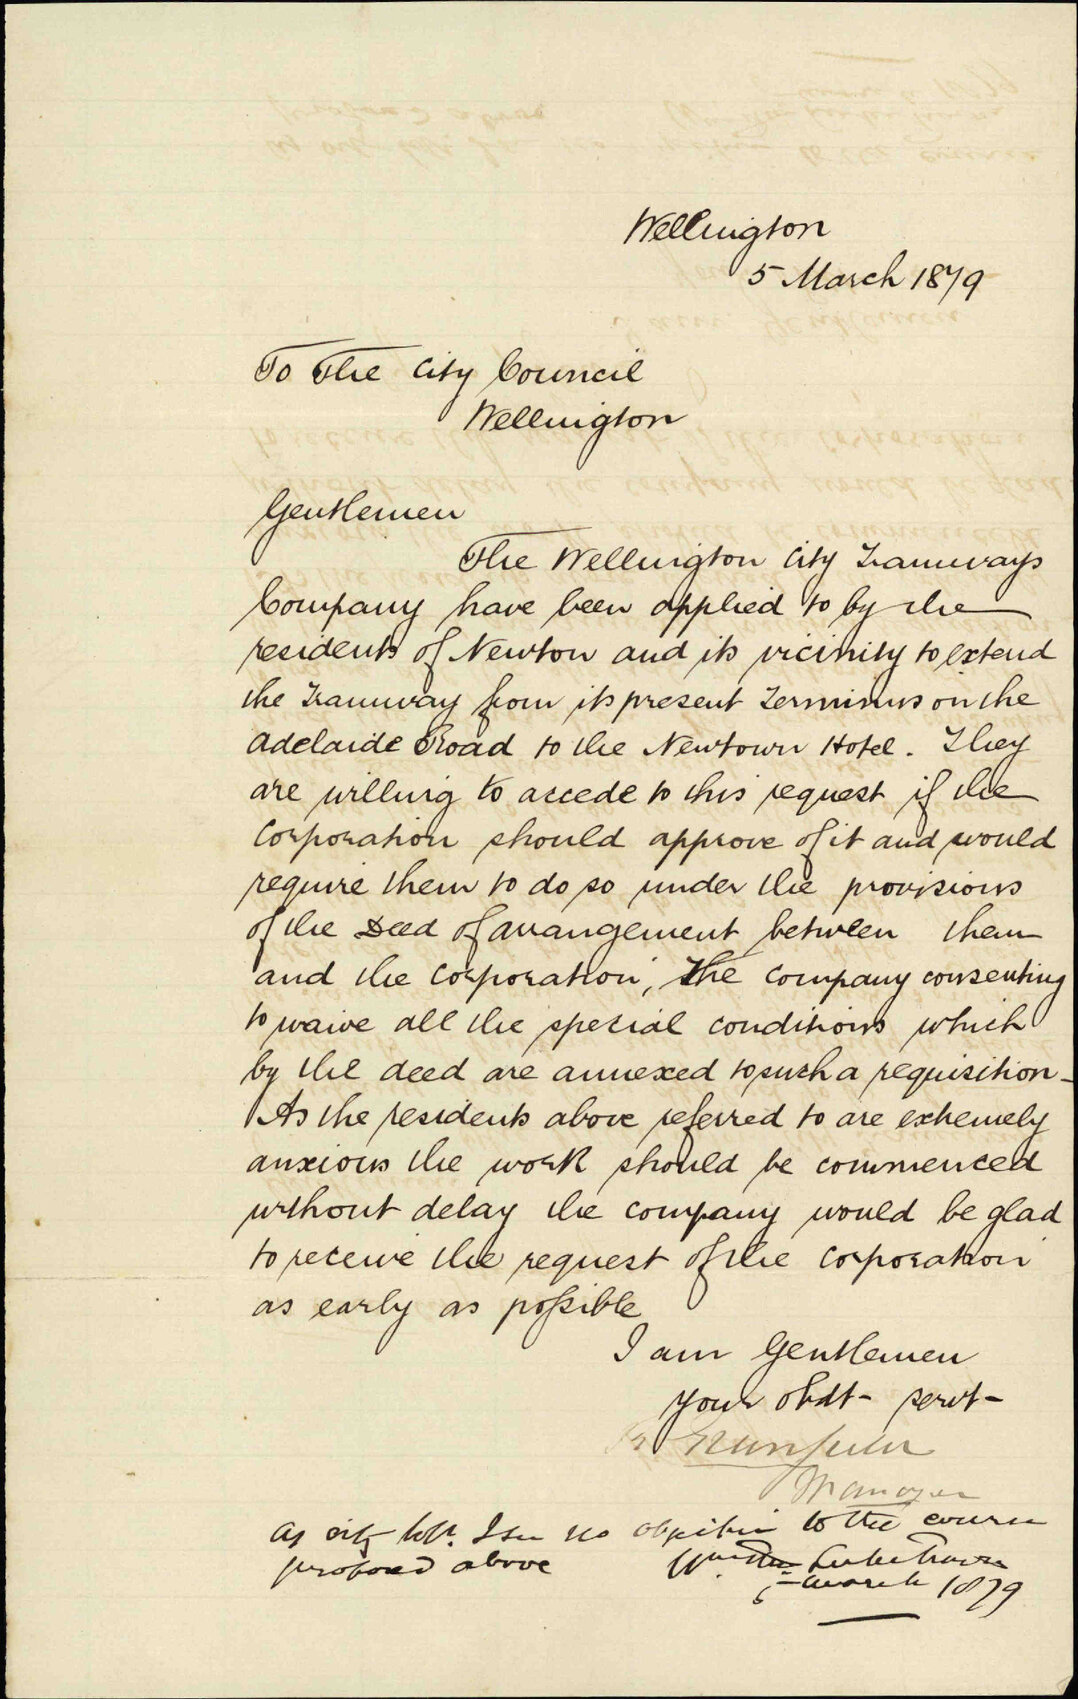 Wellington
5 March 1879
To The City Council
Wellington
Gentlemen
The Wellington City Tramways
Company have been applied to by the
residents of Newton and its vicinity to extend
the Tramway from its present Terminus on the
Adelaide Road to the Newtown Hotel. They
are willing to accede to this request if the
Corporation should approve of it and would
require them to do so under the provisions
of the Deed of arrangement between them
and the Corporation, The Company consenting
to waive all the special conditions which
by the deed are annexed to such a requisition -
As the residents above referred to are extremely
anxious the work should be commenced
without delay the company would be glad
to receive the request of the Corporation
as early as possible
I am Gentlemen
Your obdt - servt -
Manager
As city I see no objection to the course
proposed above
5 March 1879